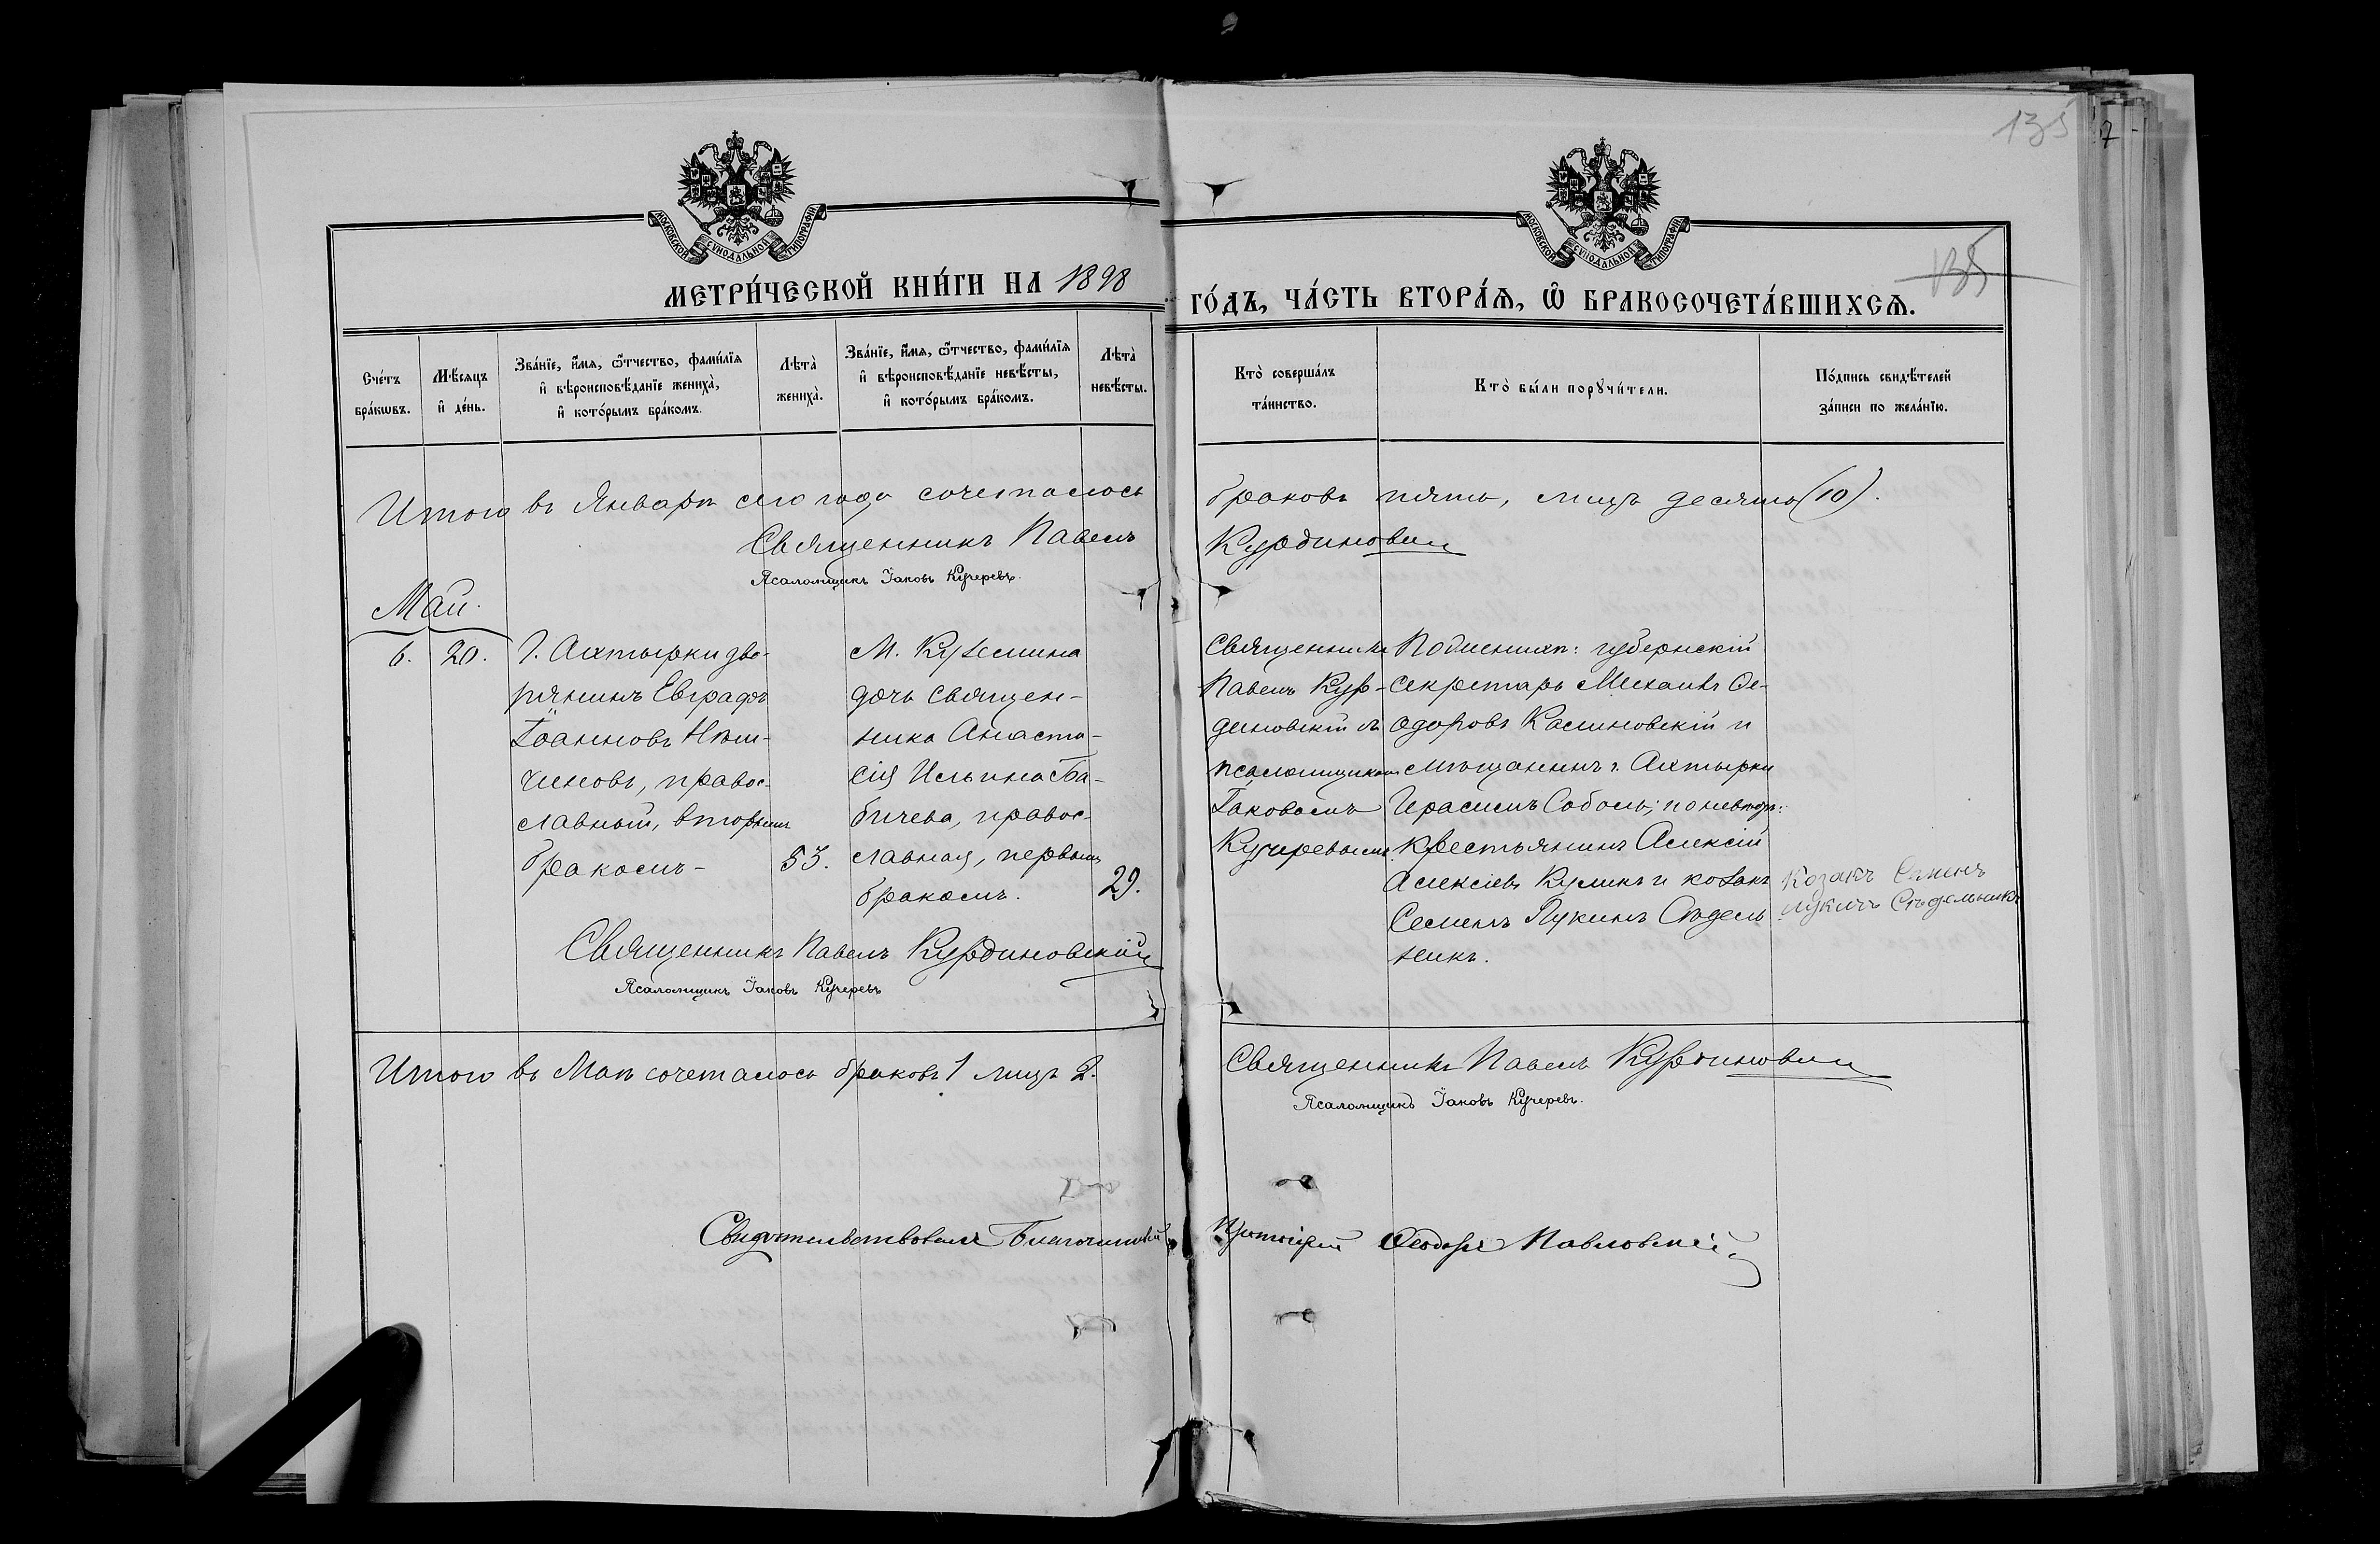 135
7
МОСКОВСКОЙ СУНОДАЛЬНОЙ ТИПОГРАФІИ
МОСКОВСКОЙ СУНОДАЛЬНОЙ ТИПОГРАФІИ
135
МЕТРИ́ЧЕСКОЙ КНИ́ГИ НА 1898
ГО́ДЪ, ЧА́СТЬ ВТОРА́Ѧ, Ѽ БРАКОСОЧЕТА́ВШИХСѦ.
Сче́тъ
бра́кѡвъ.
Мѣ́сяцъ
и҆ де́нь.
Зва́нїе, и҆́мя, ѻ҆́тчество, фами́лїя
и҆ вѣроисповѣ́данїе жениха̀,
и҆ кото́рымъ бра́комъ.
Лѣта̀
жениха̀.
Зва́нїе, и҆́мя, ѻ҆́тчество, фами́лїя
и҆ вѣроисповѣ́данїе невѣ́сты,
и҆ кото́рымъ бра́комъ.
Лѣта̀
невѣ́сты.
Кто̀ соверша́лъ
та́инство.
Кто̀ бы́ли порꙋчи́тели.
По́дпись свидѣ́телей
за́писи по жела́нїю.
Итого въ Январѣ сего года сочеталось
браковъ пять, лицъ десять (10).
Священникъ Павелъ
Курдиновскій
Псаломщикъ Іаковъ Кучеревъ.
Май.
6. 20.
Г. Ахтырки дво-
рянинъ Евграфъ
Іоанновъ
чиновъ, правос-
славный, вторымъ
бракомъ-
53.
М. Куземина
дочь священ-
ника Анаста-
сія Ильина Ба-
бичева, правос-
славная, первымъ
бракомъ.
29.
Священникъ
Павелъ Кур-
диновскій съ
псаломщикомъ
Іаковомъ
Кучеревымъ
По женихѣ: губернскій
секретарь Михаилъ Ѳе-
одоровъ Калиновскій и
мѣщанинъ г. Ахтырки
Герасимъ Соболь; по невѣстѣ:
крестьянинъ Алексій
Алексіевъ Куликъ и козакъ
Семенъ Лукинъ Сѣдель
никъ.
Козакъ Семенъ
Лукичъ Сѣдельникъ
Священникъ Павелъ Курдиновскій
Псаломщикъ Іаковъ Кучеревъ
Итого въ Маѣ сочеталось браковъ 1 лицъ 2.
Священникъ Павелъ Курдиновскій
Псаломщикъ Іаковъ Кучеревъ.
Свидѣтельствовалъ Благочинный
Протоіерей Ѳеодоръ Павловскій